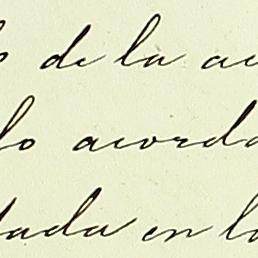 de la
lo acorda
dada en la